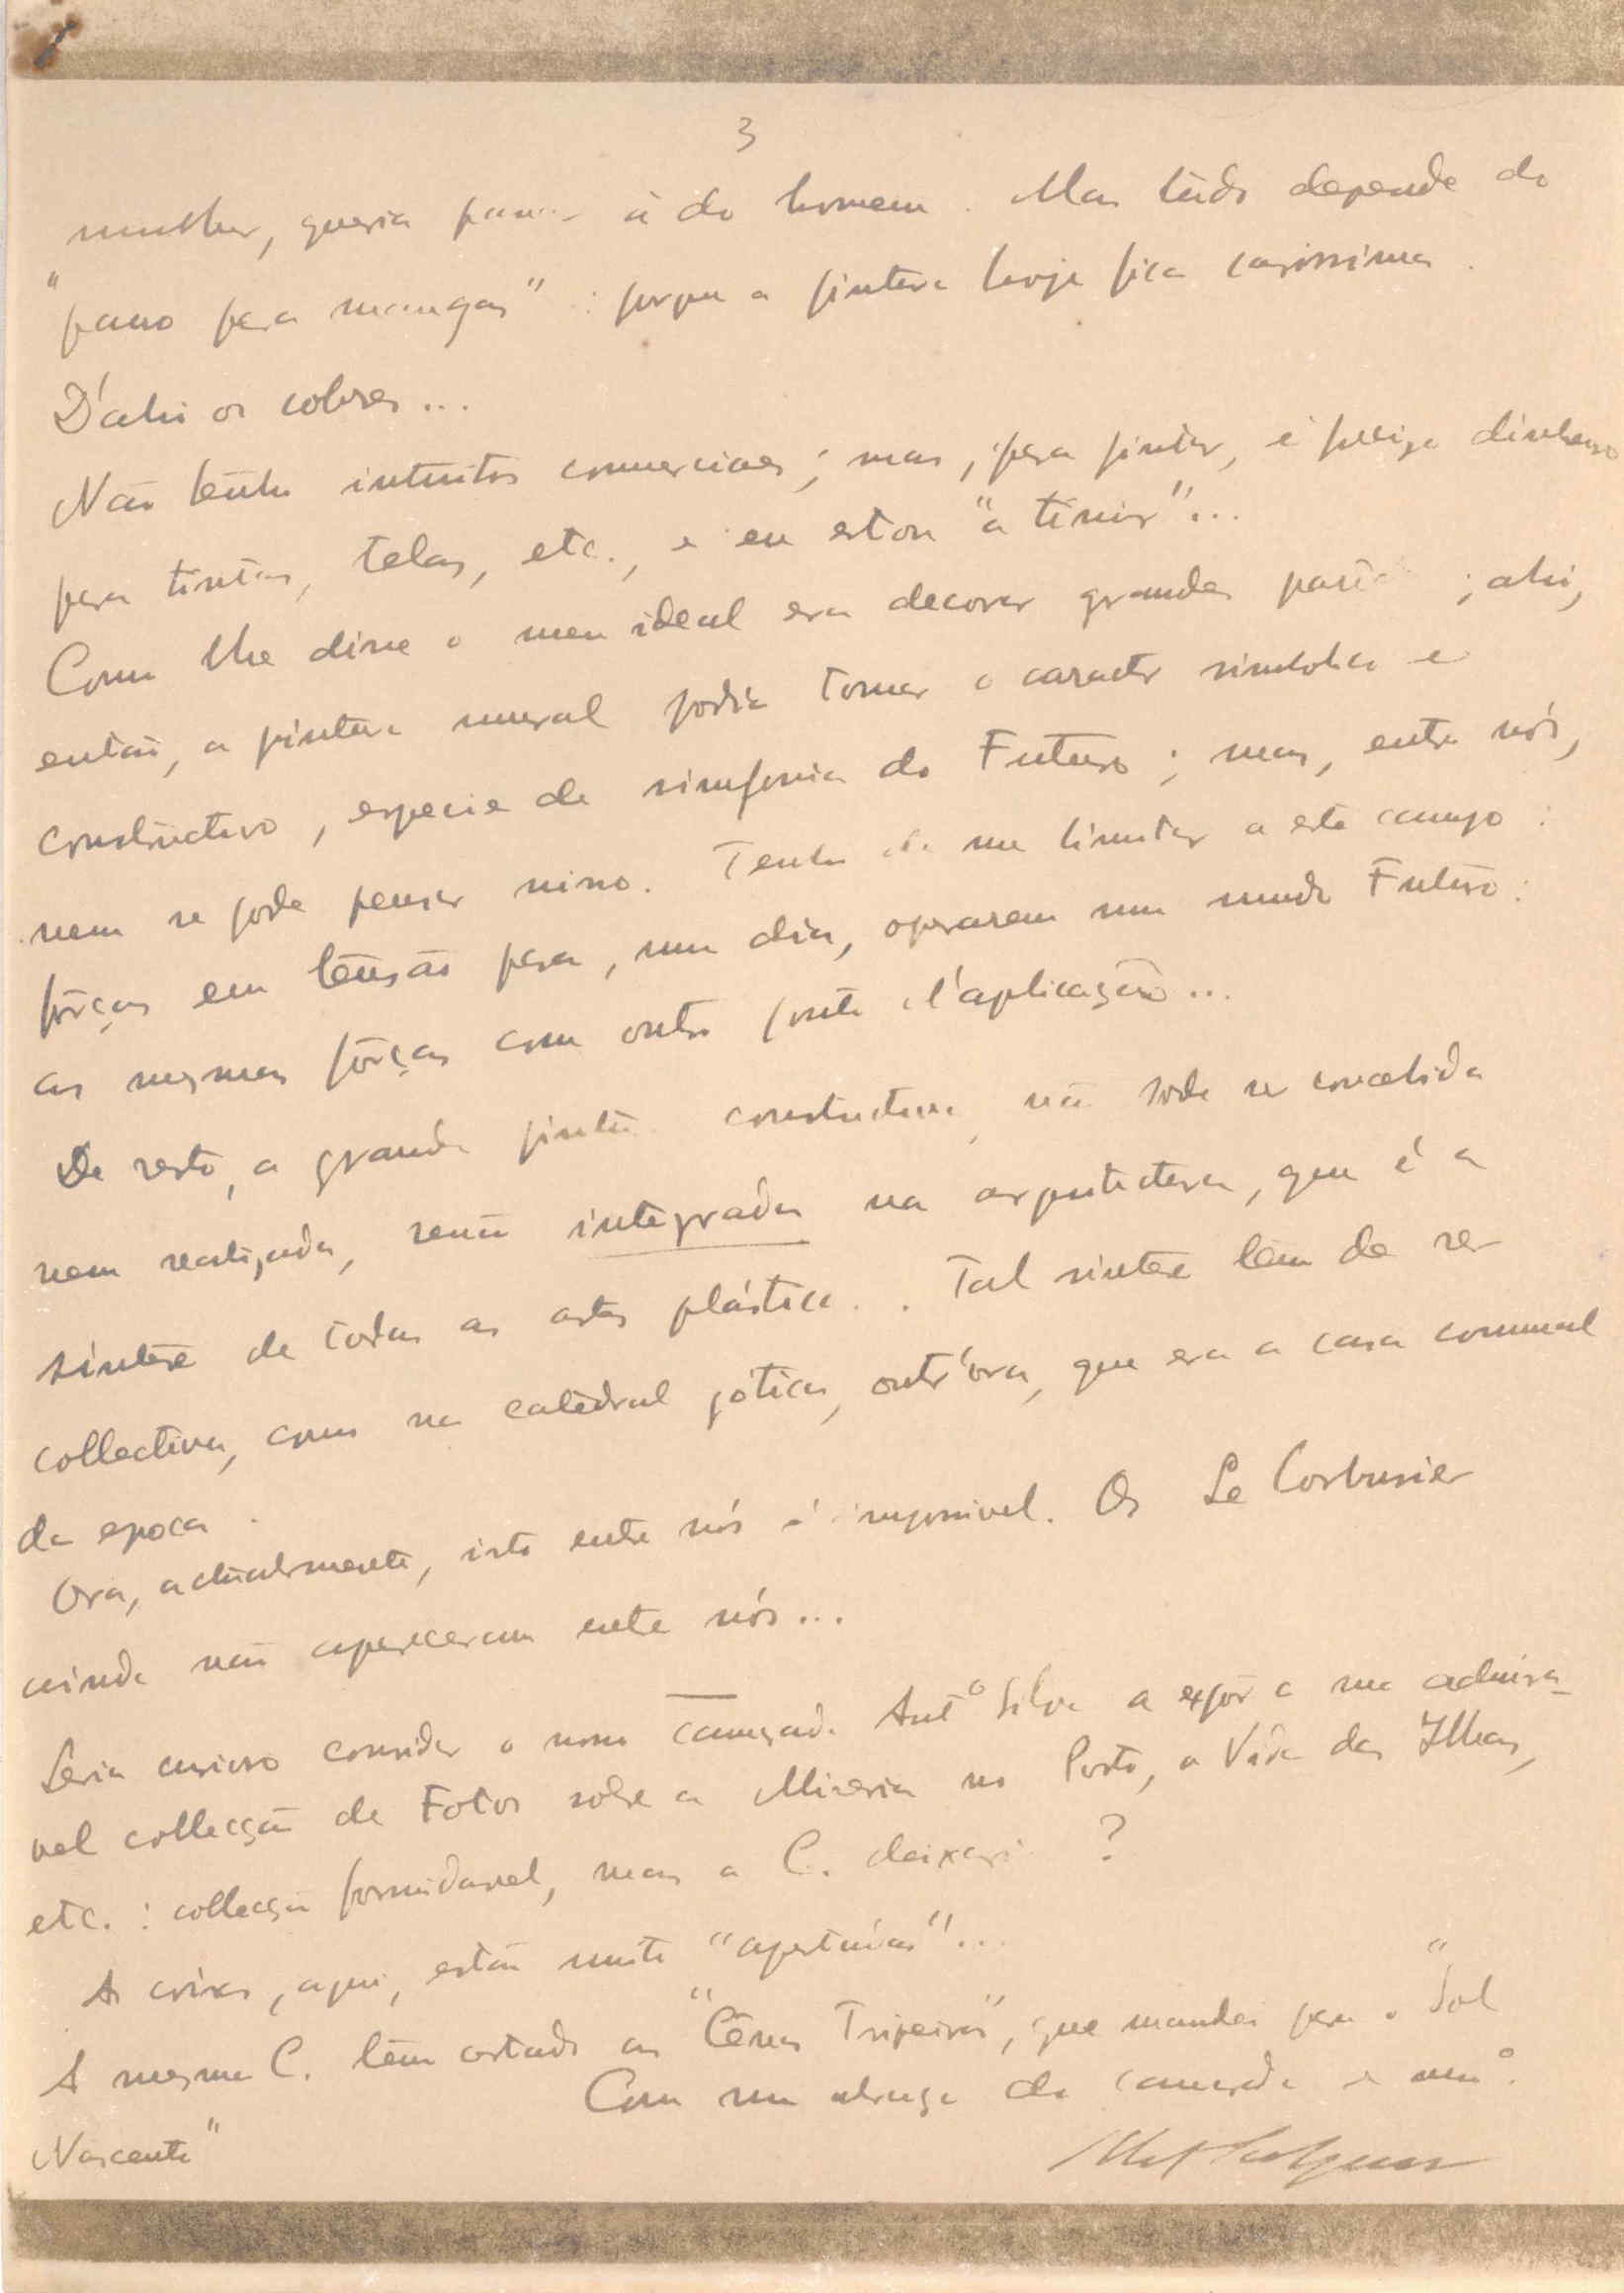 3
mulher, queria à do homem. Mas tudo depende do
"pano para mangas": porque a pintura hoje fica carissima.
D'ahi os cobres...
Não tenho intuitos comerciaes; mas, para pintar, é preciso dinheiro
para tintas, telas, etc., e eu estou "a tinir"...
Como lhe disse o meu ideal era decorar grandes ; ahi,
então, a pintura mural podia tomar o caracter simbolico e
constructivo, especie de simfonia do Futuro; mas, entre nós,
nem se pode pensar nisso. Tenho de me limitar a este campo:
fôrças em tensão para, um dia, operarem num mundo Futuro:
as mesmas fôrças com outro ponto d'aplicação...
De resto, a grande pintura constructiva não pode ser concebida
nem realizada, senão integrada na arquitectura, que é a
sintese de todas as artes plásticas. Tal sintese tem de ser
collectiva, como na catedral gótica, outr'ora, que era a casa comunal
da epoca.
Ora, actualmente, isto entre nós é impossivel. Os Le Corbusier
ainda não apareceram entre nós...
Seria curioso convidar o nosso camarada Antº Silva a expôr a sua admira-
vel collecção de Fotos sobre a Miseria no Porto, a Vida das Ilhas,
etc.: collecção formidavel, mas a C. deixará?
As coisas, aqui, estão muito "apertadas"...
A mesma C. tem cortado as "Cênas Tripeiras", que mandei para o "Sol
Nascente"
Com um abraço do camarada e